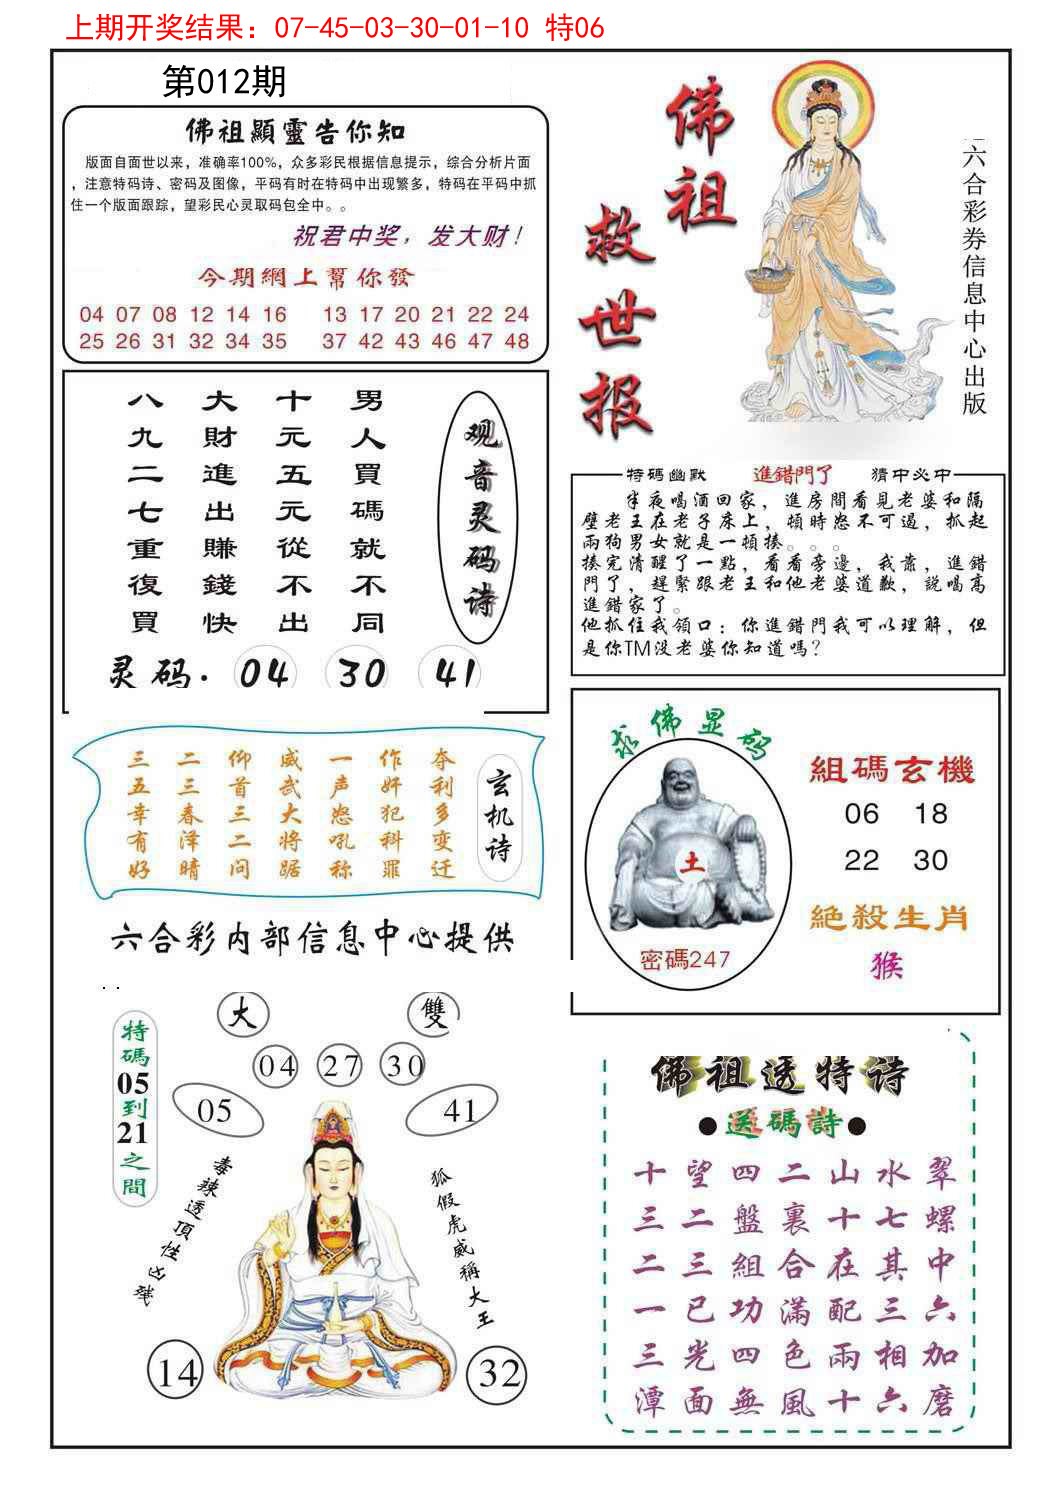 上期开奖结果：07-45-03-30-01-10 特06
第012期
佛祖顯靈告你知
版面自面世以来，准确率100%，众多彩民根据信息提示，综合分析片面
，注意特码诗、密码及图像，平码有时在特码中出现繁多，特码在平码中抓
住一个版面跟踪，望彩民心灵取码包全中。。
祝君中奖，发大财！
今期網上幫你發
04 07 08 12 14 16 13 17 20 21 22 24
25 26 31 32 34 35 37 42 43 46 47 48
佛祖
救世报
六合彩券信息中心出版
观音灵码诗
男人買碼就不同
十元五元從不出
大財進出賺錢快
八九二七重復買
灵码. 04 30 41
特碼幽默 進錯門了 猜中必中
半夜喝酒回家，進房間看見老婆和隔
壁老王在老子床上，頓時怒不可遏，抓起
兩狗男女就是一頓揍。。。
揍完清醒了一點，看看旁邊，我靠，進錯
門了，趕緊跟老王和他老婆道歉，説喝高
進錯家了。
他抓住我領口：你進錯門我可以理解，但
是你TM没老婆你知道嗎？
玄机诗
夺利多变迁
作奸犯科罪
一声怒吼称
威武大将踞
仰首三二问
二三春泽晴
三五幸有好
六合彩内部信息中心提供
求佛显码
土
密碼247
組碼玄機
06 18
22 30
絕殺生肖
猴
特碼05到21之間
大 雙
04 27 30
05 41
毒辣透頂性凶残
狐假虎威稱大王
14 32
佛祖透特诗
●送碼詩●
十望四二山水翠
三二盤裏十七螺
二三組合在其中
一已功滿配三六
三光四色兩相加
潭面無風十六磨